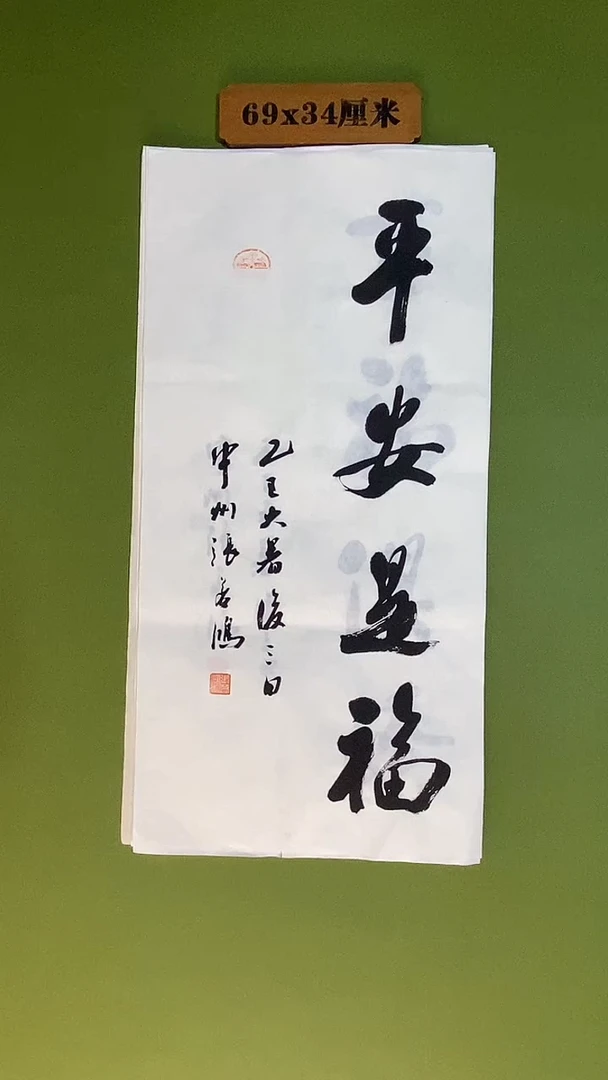 69x34厘米
平安是福
乙巳大暑後三日
中州張若鴻